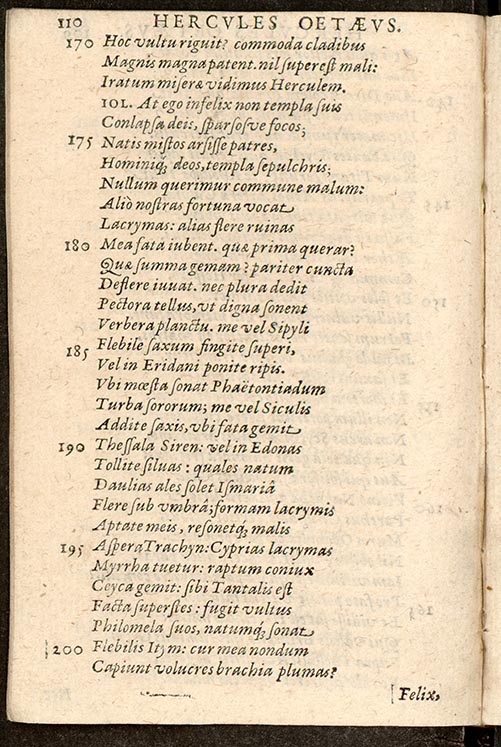 110 HERCVLES OETÆVS.
170 Hoc vultu riguit? commoda cladibus
Magnis magna patent. nil superest mali:
Iratum miseræ vidimus Herculem.
IOL. At ego infelix non templa suis
Conlapsa deis, sparsosve focos;
175 Natis mistos arsisse patres,
Hominiq́; deos, templa sepulchris;
Nullum querimur commune malum:
Aliò nostras fortuna vocat
Lacrymas: alias flere ruinas
180 Mea fata iubent. quæ prima querar?
Quæ summa gemam? pariter cuncta
Deflere iuuat. nec plura dedit
Pectora tellus, vt digna sonent
Verbera planctu. me vel Sipyli
185 Flebile saxum fingite superi,
Vel in Eridani ponite ripis.
Vbi mœsta sonat Phaëtontiadum
Turba sororum; me vel Siculis
Addite saxis, vbi fata gemit
190 Thessala Siren: vel in Edonas
Tollite siluas: quales natum
Daulias ales solet Ismariâ
Flere sub vmbrâ; formam lacrymis
Aptate meis, resonetq́; malis
195 Aspera Trachyn: Cyprias lacrymas
Myrrha tuetur: raptum coniux
Ceyca gemit: sibi Tantalis est
Facta superstes: fugit vultus
Philomela suos, natumq́; sonat
200 Flebilis Itym: cur mea nondum
Capiunt volucres brachia plumas?
Felix,